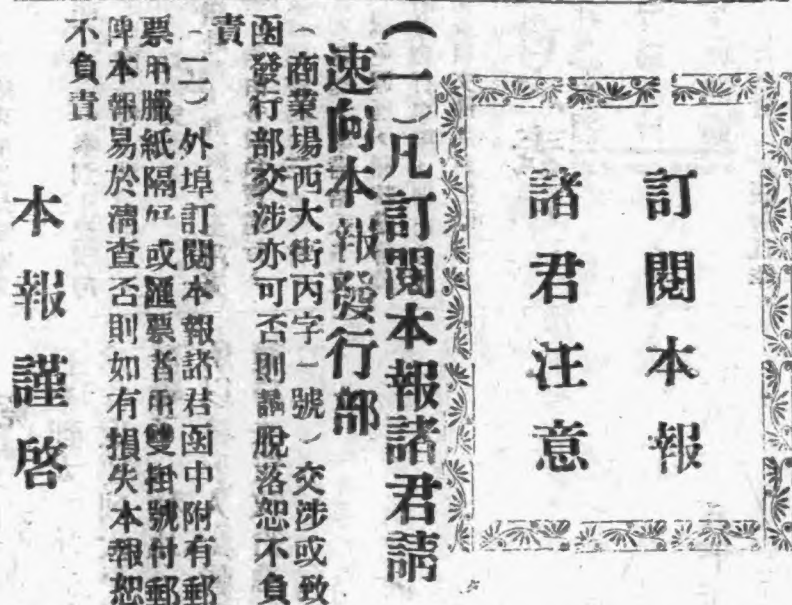 訂閱本報
諸君注意
(一)凡訂閱本報諸君請
速向本報發行部
(商業場西大街丙字一號)交涉或致
函發行部交涉亦可否則譌脫落恕不負
責
(二)外埠訂閱本報諸君函中附有郵
票用臘紙隔好或匯票者用雙掛號付郵
俾本報易於清查否則如有損失本報恕
不負責
本報謹啓